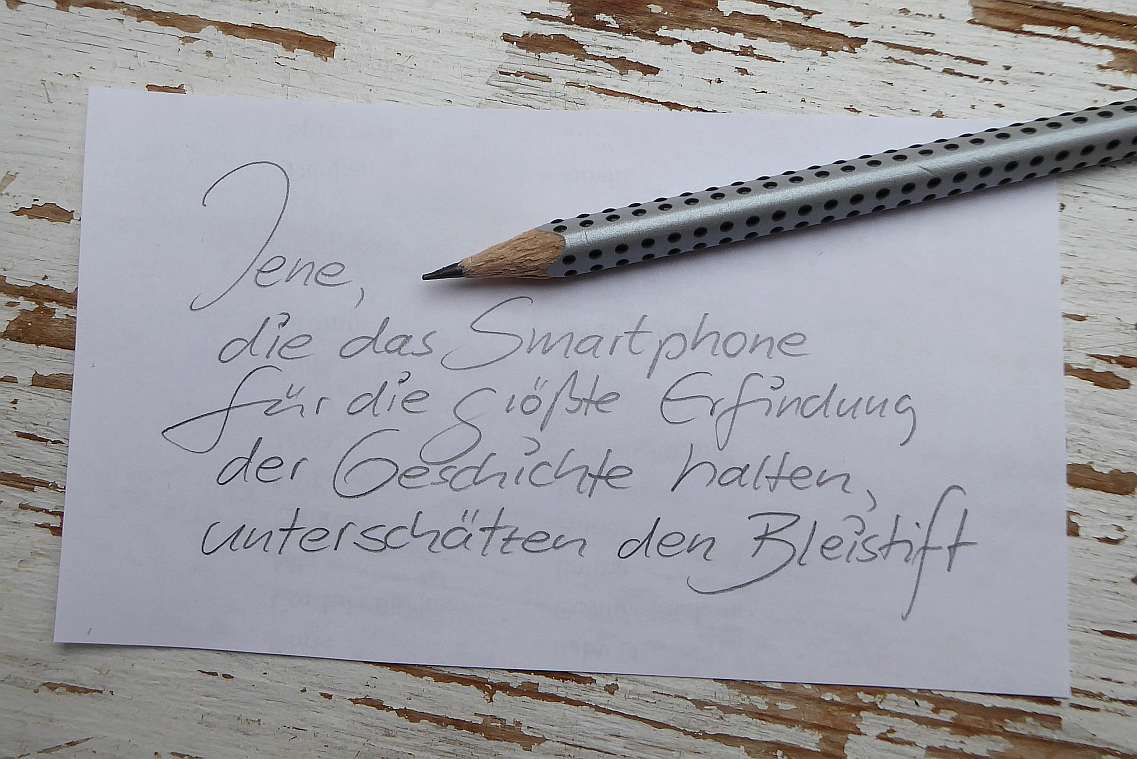 Jene,
die das Smartphone
für die größte Erfindung
der Geschichte halten,
unterschätzen den Bleistift